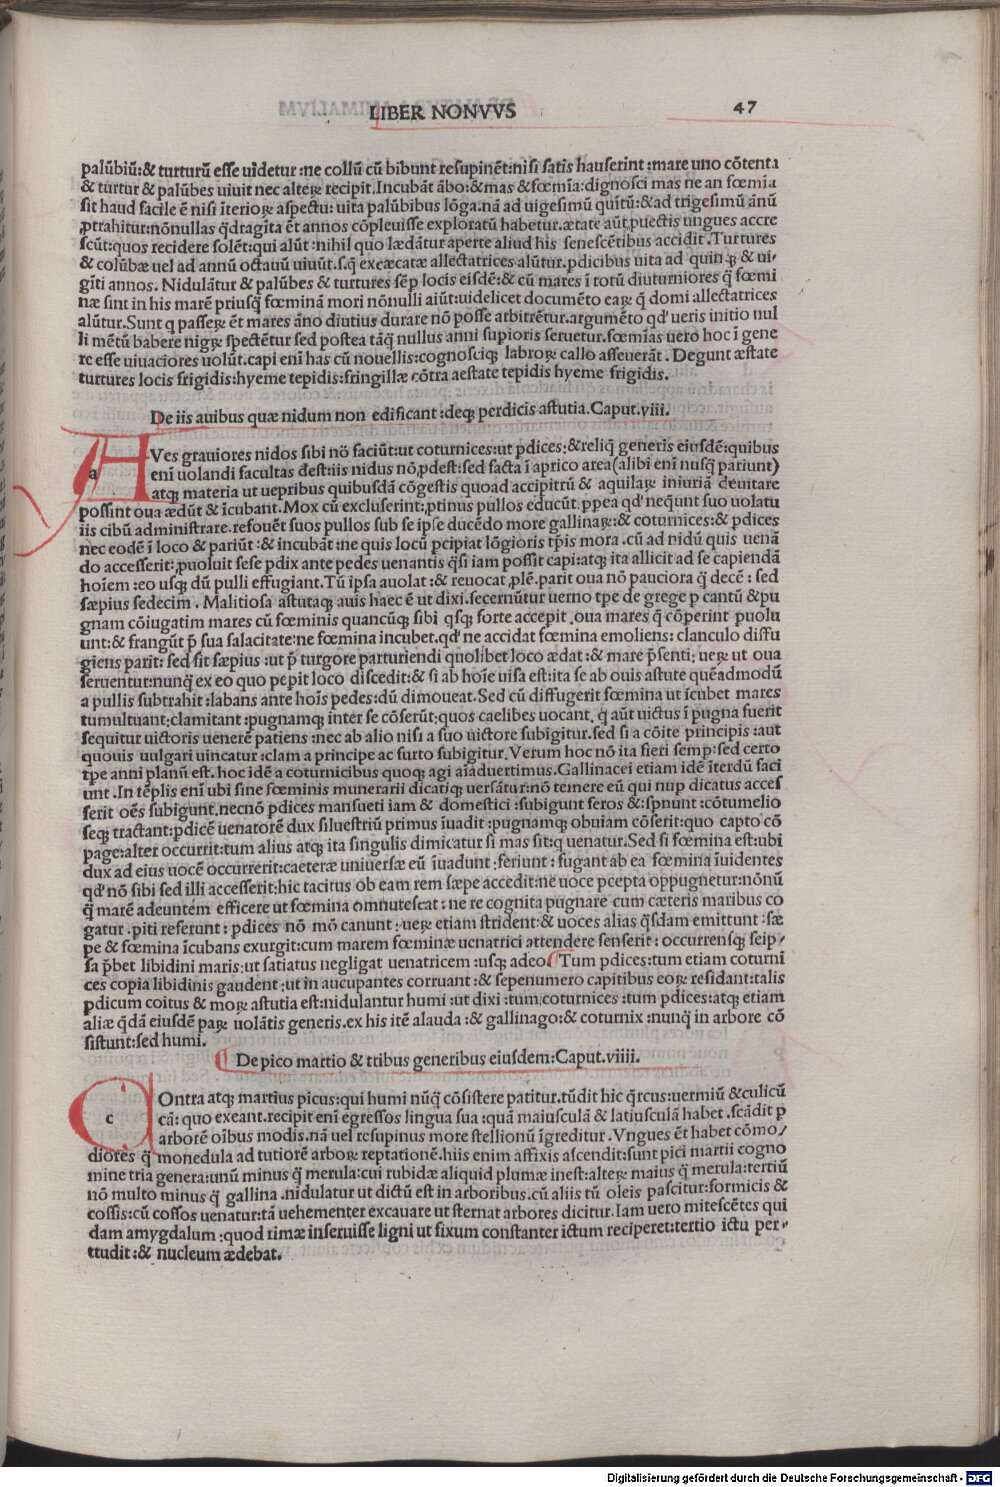 LIBER NONVVS 47
palūbiū:& turturū esse uidetur :ne collū cū bibunt resupinēt:nisi satis hauserint :mare uno cōtenta
& turtur & palūbes uiuit nec alteꝝ recipit.Incubāt ābo:&mas &fœmīa:dignosci mas ne an fœmīa
sit haud facile ē nisi īterioꝝ aspectu: uita palūbibus lōga.nā ad uigesimū quītū:&ad trigesimū ānū
ꝓtrahitur:nōnullas q̄dragīta ēt annos cōpleuisse exploratū habetur.ætate aūt ꝓuectis ungues accre
scūt:quos recidere solēt:qui alūt :nihil quo lædātur aperte aliud his senescētibus accidit.Turtures
& colūbæ uel ad annū octauū uiuūt.s.q̨ excæcatæ allectatrices alūtur.ꝑdicibus uita ad quinꝗ & ui-
gīti annos. Nidulātur & palūbes & turtures sēꝑ locis eisdē:& cū mares ī totū diuturniores q̄ fœmi
næ sint in his marē priusq̄ fœminā mori nōnulli aiūt:uidelicet documēto eaꝝ q̨ domi allectatrices
alūtur.Sunt q passeꝝ ēt mares āno diutius durare nō posse arbitrētur.argumēto qd' ueris initio nul
li mētū babere nigꝝ spectētur sed postea tāq̄ nullus anni supioris seruetur.fœmīas uero hoc ī gene
re esse uiuaciores uolūt.capi enī has cū nouellis:cognosciꝗ labroꝝ callo asseuerāt. Degunt æstate
turtures locis frigidis:hyeme tepidis:fringillæ cōtra aestate tepidis hyeme frigidis.
De iis auibus quæ nidum non edificant :deꝗ perdicis astutia.Caput.viii.
a AVes grauiores nidos sibi nō faciūt:ut coturnices:ut ꝑdices:&reliq̨ generis eiusdē:quibus
enī uolandi facultas deest:iis nidus nō ꝓdest:sed facta ī aprico area(alibi enī nusq̄ pariunt)
atꝗ materia ut uepribus quibusdā cōgestis quoad accipitrū & aquilaꝝ iniuriā deuitare
possint oua ædūt & īcubant.Mox cū excluserint:ꝓtinus pullos educūt.ꝑpea qd' nequt suo uolatu
iis cibū administrare.refouēt suos pullos sub se ipse ducēdo more gallinaꝝ:& coturnices:& ꝑdices
nec eodē ī loco & pariūt :& incubāt :ne quis locū ꝑcipiat lōgioris tp̄is mora .cū ad nidū quis uenā
do accesserit:ꝓuoluit sese ꝑdix ante pedes uenantis q̄si iam possit capi:atꝗ ita allicit ad se capiendā
hoīem :eo usꝗ dū pulli effugiant.Tū ipsa auolat :& reuocat ꝓlē.parit oua nō pauciora q̄ decē : sed
sæpius sedecim . Malitiosa astutaꝗ auis haec ē ut dixi.secernūtur uerno tp̄e de grege ꝑ cantū &pu
gnam cōiugatim mares cū fœminis quancūꝗ sibi q̨sꝗ forte accepit .oua mares q̨ cōperint ꝓuolu
unt:& frangūt p̄ sua salacitate:ne fœmina incubet.qd' ne accidat fœmina emoliens: clanculo diffu
giens parit: sed sit sæpius :ut p̄ turgore parturiendi quolibet loco ædat :& mare p̄senti: ueꝝ ut oua
seruentur:nunq̄ ex eo quo peꝑit loco discedit:& si ab hoīe uisa est:ita se ab ouis astute quēadmodū
a pullis subtrahit :labans ante hoīs pedes:dū dimoueat.Sed cū diffugerit fœmina ut īcubet mares
tumultuant:clamitant :pugnamꝗ inter se cōserūt:quos caelibes uocant. q̨ aūt uictus ī pugna fuerit
sequitur uictoris uenerē patiens :nec ab alio nisi a suo uictore subigitur.sed si a cōite principis :aut
quouis uulgari uincatur :clam a principe ac furto subigitur.Verum hoc nō ita fieri semꝑ:sed certo
tp̄e anni planū est. hoc idē a coturnicibus quoꝗ agi aīaduertimus.Gallinacei etiam idē īterdū faci
unt .In tēplis enī ubi sine fœminis munerarii dicatiꝗ uersātur:nō temere eū qui nup dicatus acces
serit oēs subigunt.necnō ꝑdices mansueti iam & domestici :subigunt feros & :spnunt :cōtumelio
seꝗ tractant:ꝑdicē uenatorē dux siluestriū primus īuadit :pugnamꝗ obuiam cōserit:quo capto cō
page:alter occurrit:tum alius atꝗ ita singulis dimicatur si mas sit:q uenatur.Sed si fœmina est:ubi
dux ad eius uocē occurrerit:caeteræ uniuersæ eū īuadunt :feriunt : fugant ab ea fœmina īuidentes
qd' nō sibi sed illi accesserit:hic tacitus ob eam rem sæpe accedit:ne uoce ꝑcepta oppugnetur:nōnū
q̄ marē adeuntem efficere ut fœmina omnutescat : ne re cognita pugnare cum cæteris maribus co
gatur .piti referunt : ꝑdices nō mō canunt :ueꝝ etiam strident:& uoces alias q̄sdam emittunt :sæ
pe & fœmina īcubans exurgit:cum marem fœminæ uenatrici attendere senserit : occurrensꝗ seip-
sa p̄bet libidini maris:ut satiatus negligat uenatricem :usꝗ adeo.Tum ꝑdices:tum etiam coturni
ces copia libidinis gaudent :ut in aucupantes corruant :& sepenumero capitibus eoꝝ residant:talis
ꝑdicum coitus & moꝝ astutia est:nidulantur humi :ut dixi :tum coturnices :tum ꝑdices:atꝗ etiam
aliæ q̄dā eiusdē paꝝ uolātis generis.ex his itē alauda :& gallinago:& coturnix :nunq̄ in arbore cō
sistunt:sed humi.
De pico martio & tribus generibus eiusdem:Caput.viiii.
c COntra atꝗ martius picus:qui humi nūq̄ cōsistere patitur.tūdit hic q̄rcus:uermiū &culicū
cā: quo exeant.recipit enī egressos lingua sua :quā maiusculā & latiusculā habet .scādit ꝑ
arborē oībus modis.nā uel resupinus more stellionū īgreditur.Vngues ēt habet cōmo/
diores q̄ monedula ad tutiorē arboꝝ reptationē.hiis enim affixis ascendit:sunt pici martii cogno
mine tria genera:unū minus q̄ merula:cui rubidæ aliquid plumæ inest:alteꝝ maius q̄ merula:tertiū
nō multo minus q̄ gallina .nidulatur ut dictū est in arboribus.cū aliis tū oleis pascitur:formicis &
cossis:cū cossos uenatur:tā uehementer excauare ut sternat arbores dicitur.Iam uero mitescētes qui
dam amygdalum :quod rimæ inseruisse ligni ut fixum constanter ictum reciperet:tertio ictu per-
ttudit :& nucleum ædebat.
Digitalisierung gefördert durch die Deutsche Forschungsgemeinschaft - DFG